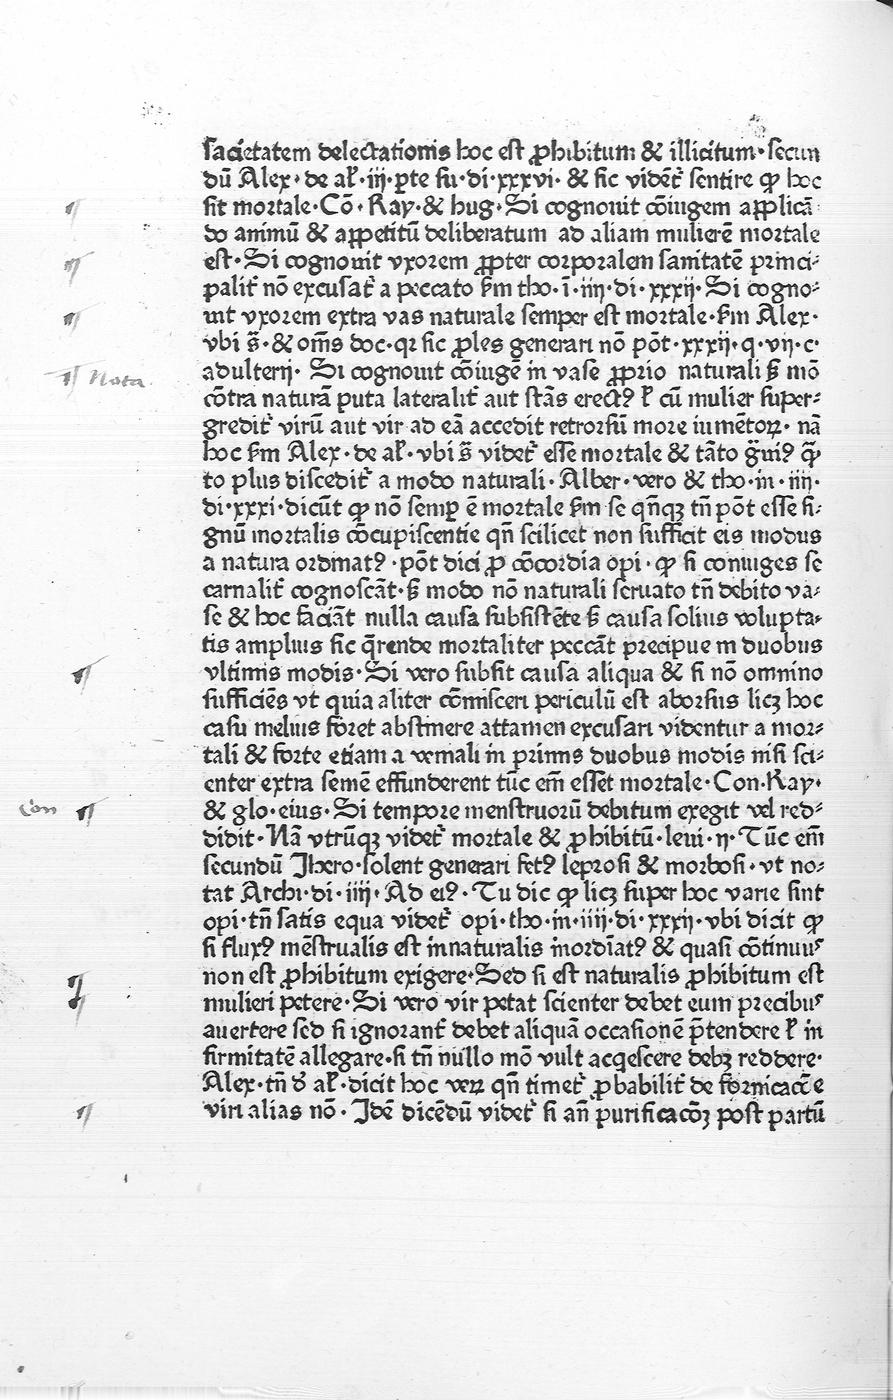 sacietatem delectationis hoc est ꝓhibitum & illicitum· secun
dū Alex· de al̄· iij· ꝑte su· di· xxxvi· & sic videt᷑ sentire ꝙ hoc
sit mortale· Cō· Ray· & hug· Si cognouit cōiugem applicā
do animū & appetitū deliberatum ad aliam mulierē mortale
est· Si cognouit vxorem ꝓpter corporalem sanitatē princi⸗
palit᷑ nō excusat᷑ a peccato ẜm tho· ī· iiij· di· xxxij· Si cogno⸗
uit vxorem extra vas naturale semper est mortale· ẜm Alex·
vbi s̄· & om̄s doc· qr sic ꝓles generari nō pōt· xxxij· q· vij· c·
adulterij· Si cognouit cōiugē in vase ꝓprio naturali ẜ mō
cōtra naturā puta lateralit᷑ aut stās erectꝰ ł cū mulier super⸗
gredit᷑ virū aut vir ad eā accedit retrorsū more iumētoꝝ· nā
hoc ẜm Alex· de al̄· vbi s̄ videt᷑ esse mortale & tāto g̈uiꝰ q̄ꝫ
to plus discedit᷑ a modo naturali· Alber· vero & tho· in· iiij·
di· xxxi· dicūt ꝙ nō semꝑ ē mortale ẜm se qn̄qꝫ tn̄ pōt esse si⸗
gnū mortalis cōcupiscentie qn̄ scilicet non sufficit eis modus
a natura ordinatꝰ· pōt dici ꝓ cōcordia opi· ꝙ si coniuges se
carnalit᷑ cognoscāt· ẜ modo nō naturali seruato tn̄ debito va⸗
se & hoc faciāt nulla causa subsistēte ẜ causa solius volupta⸗
tis amplius sic q̄rende mortaliter peccāt precipue in duobus
vltimis modis· Si vero subsit causa aliqua & si nō omnino
sufficiēs vt quia aliter cōmisceri periculū est aborsus licꝫ hoc
casu melius foret abstinere attamen excusari videntur a mor⸗
tali & forte etiam a veniali in primis duobus modis nisi sci⸗
enter extra semē effunderent tūc em̄ esset mortale· Con· Ray·
& glo· eius· Si tempore menstruorū debitum exegit vel red⸗
didit· Nā vtrūqꝫ videt᷑ mortale & ꝓhibitū· leui· ij· Tūc em̄
secundū Jhero· solent generari fetꝰ leprosi & morbosi· vt no⸗
tat Archi· di· iiij· Ad eiꝰ· Tu dic ꝙ licꝫ super hoc varie sint
opi· tn̄ satis equa videt᷑ opi· tho· in· iiij· di· xxxij· vbi dicit ꝙ
si fluxꝰ mēstrualis est innaturalis inordīatꝰ & quasi cōtinuuꝰ
non est ꝓhibitum exigere· Sed si est naturalis ꝓhibitum est
mulieri petere· Si vero vir petat scienter debet eum precibuꝰ
auertere sed si ignorant᷑ debet aliquā occasionē p̄tendere ł in
firmitatē allegare· si tn̄ nullo mō vult acqescere debꝫ reddere·
Alex· tn̄ ď al̄· dicit hoc veꝝ qn̄ timet᷑ ꝓbabilit᷑ de fornicacōe
viri alias nō· Idē dicēdū videt᷑ si an̄ purificacōꝫ post partū
Nota
Con